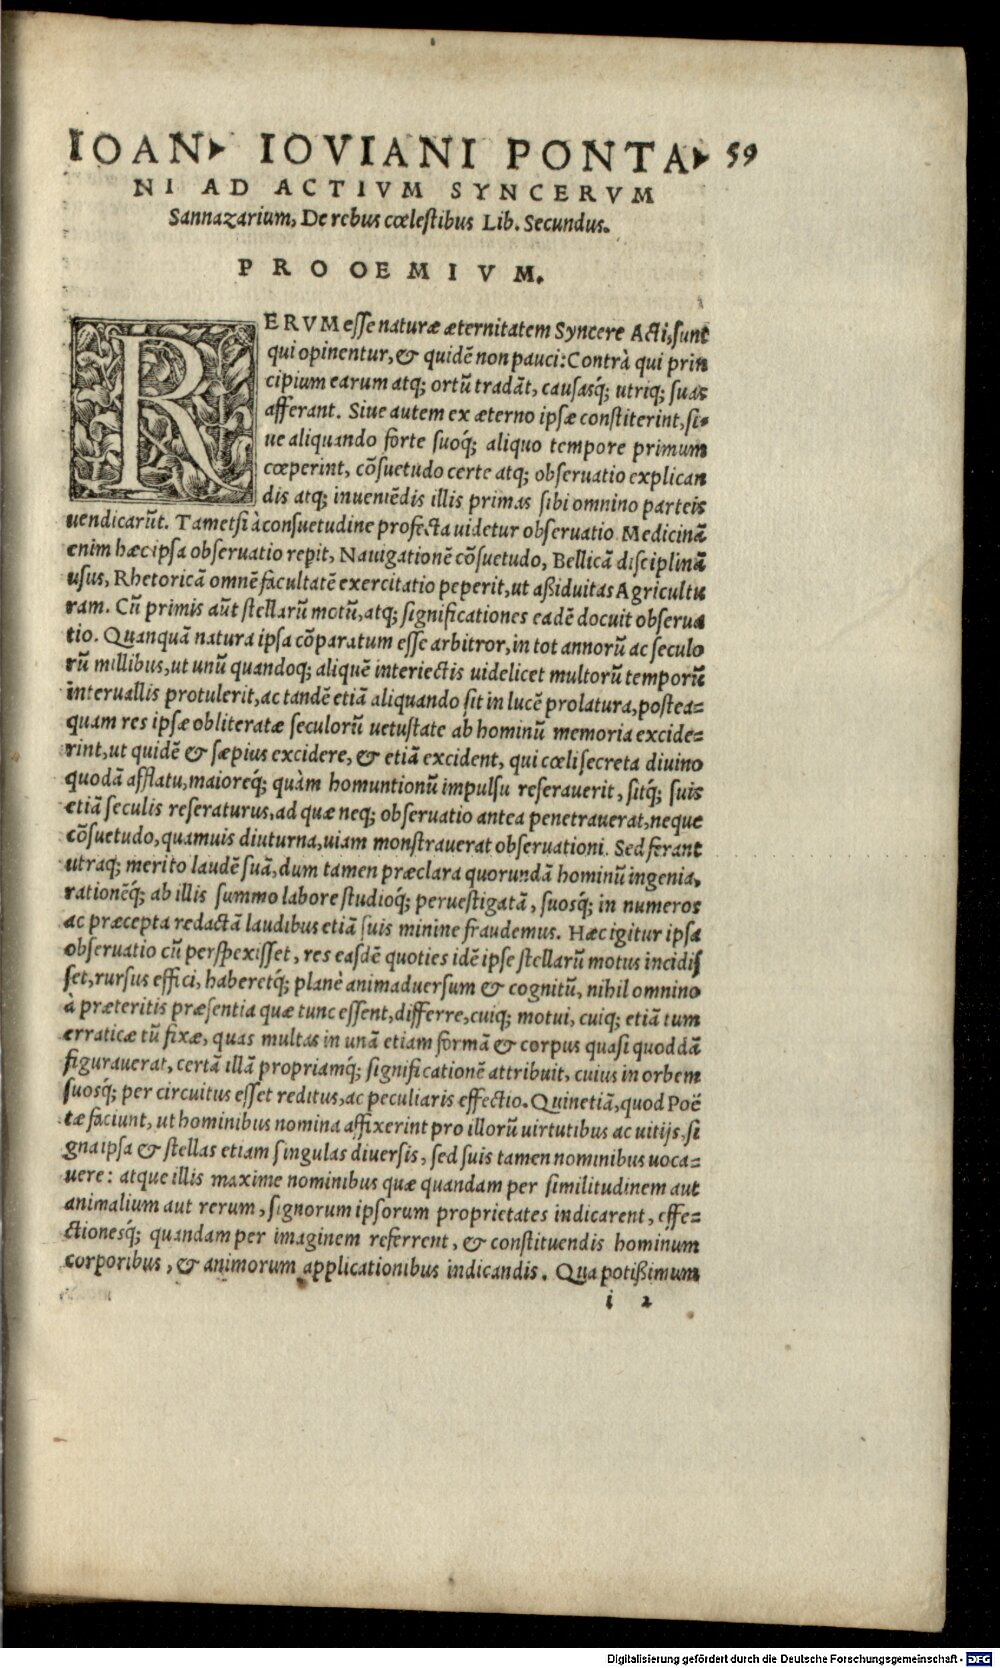 IOAN▸ IOVIANI PONTA▸ 59
NI AD ACTIVM SYNCERVM
Sannazarium, De rebus cœlestibus Lib. Secundus.
PROOEMIVM.
RERVM esse naturæ æternitatem Syncere Acti, sunt
qui opinentur, & quidẽ non pauci: Contrà qui prin
cipium earum atq; ortũ tradãt, causasq́; utriq; suas
afferant. Siue autem ex æterno ipsæ constiterint, si-
ue aliquando forte suoq́; aliquo tempore primum
cœperint, cõsuetudo certe atq; obseruatio explican
dis atq; inueniẽdis illis primas sibi omnino parteis
uendicarũt. Tametsi à consuetudine profecta uidetur obseruatio. Medicinã
enim hæc ipsa obseruatio repit, Nauigationẽ cõsuetudo, Bellicã disciplinã
usus, Rhetoricã omnẽ facultatẽ exercitatio peperit, ut aßiduitas Agricultu
ram. Cũ primis aũt stellarũ motũ, atq; significationes eadẽ docuit obserua
tio. Quanquã natura ipsa cõparatum esse arbitror, in tot annorũ ac seculo
rũ millibus, ut unũ quandoq; aliquẽ interiectis uidelicet multorũ temporũ
interuallis protulerit, ac tandẽ etiã aliquando sit in lucẽ prolatura, postea=
quam res ipsæ obliteratæ seculorũ uetustate ab hominũ memoria excide=
rint, ut quidẽ & sæpius excidere, & etiã excident, qui cœli secreta diuino
quodã afflatu, maioreq́; quàm homuntionũ impulsu reserauerit, sitq́; suis
etiã seculis reseraturus, ad quæ neq; obseruatio antea penetrauerat, neque
cõsuetudo, quamuis diuturna, uiam monstrauerat obseruationi. Sed ferant
utraq; merito laudẽ suã, dum tamen præclara quorundã hominũ ingenia,
rationẽq́; ab illis summo labore studioq́; peruestigatã, suosq́; in numeros
ac præcepta redactã laudibus etiã suis minine fraudemus. Hæc igitur ipsa
obseruatio cũ perspexisset, res easdẽ quoties idẽ ipse stellarũ motus incidis
set, rursus effici, haberetq́; planè animaduersum & cognitũ, nihil omnino
à præteritis præsentia quæ tunc essent, differre, cuiq; motui, cuiq; etiã tum
erraticæ tũ fixæ, quas multas in unã etiam formã & corpus quasi quoddã
figurauerat, certã illã propriamq́; significationẽ attribuit, cuius in orbem
suosq́; per circuitus esset reditus, ac peculiaris effectio. Quinetiã, quod Poë
tæ faciunt, ut hominibus nomina affixerint pro illorũ uirtutibus ac uitijs, si
gna ipsa & stellas etiam singulas diuersis, sed suis tamen nominibus uoca=
uere: atque illis maxime nominibus quæ quandam per similitudinem aut
animalium aut rerum, signorum ipsorum proprietates indicarent, effe=
ctionesq́; quandam per imaginem referrent, & constituendis hominum
corporibus, & animorum applicationibus indicandis. Qua potißimum
i 2
Digitalisierung gefördert durch die Deutsche Forschungsgemeinschaft - DFG